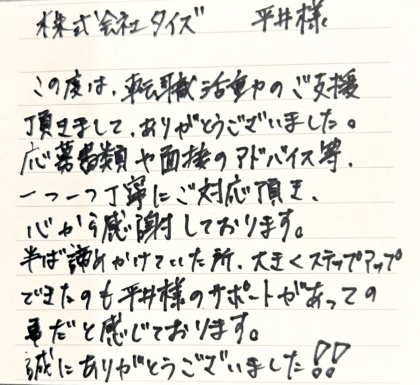 株式会社タイズ 平井様
この度は、転職活動のご支援
頂きまして、ありがとうございました。
応募書類や面接のアドバイス等、
一つ一つ丁寧にご対応頂き、
心から感謝しております。
半ば諦めかけていた所、大きくステップアップ
できたのも平井様のサポートがあっての
事だと感じております。
誠にありがとうございました!!